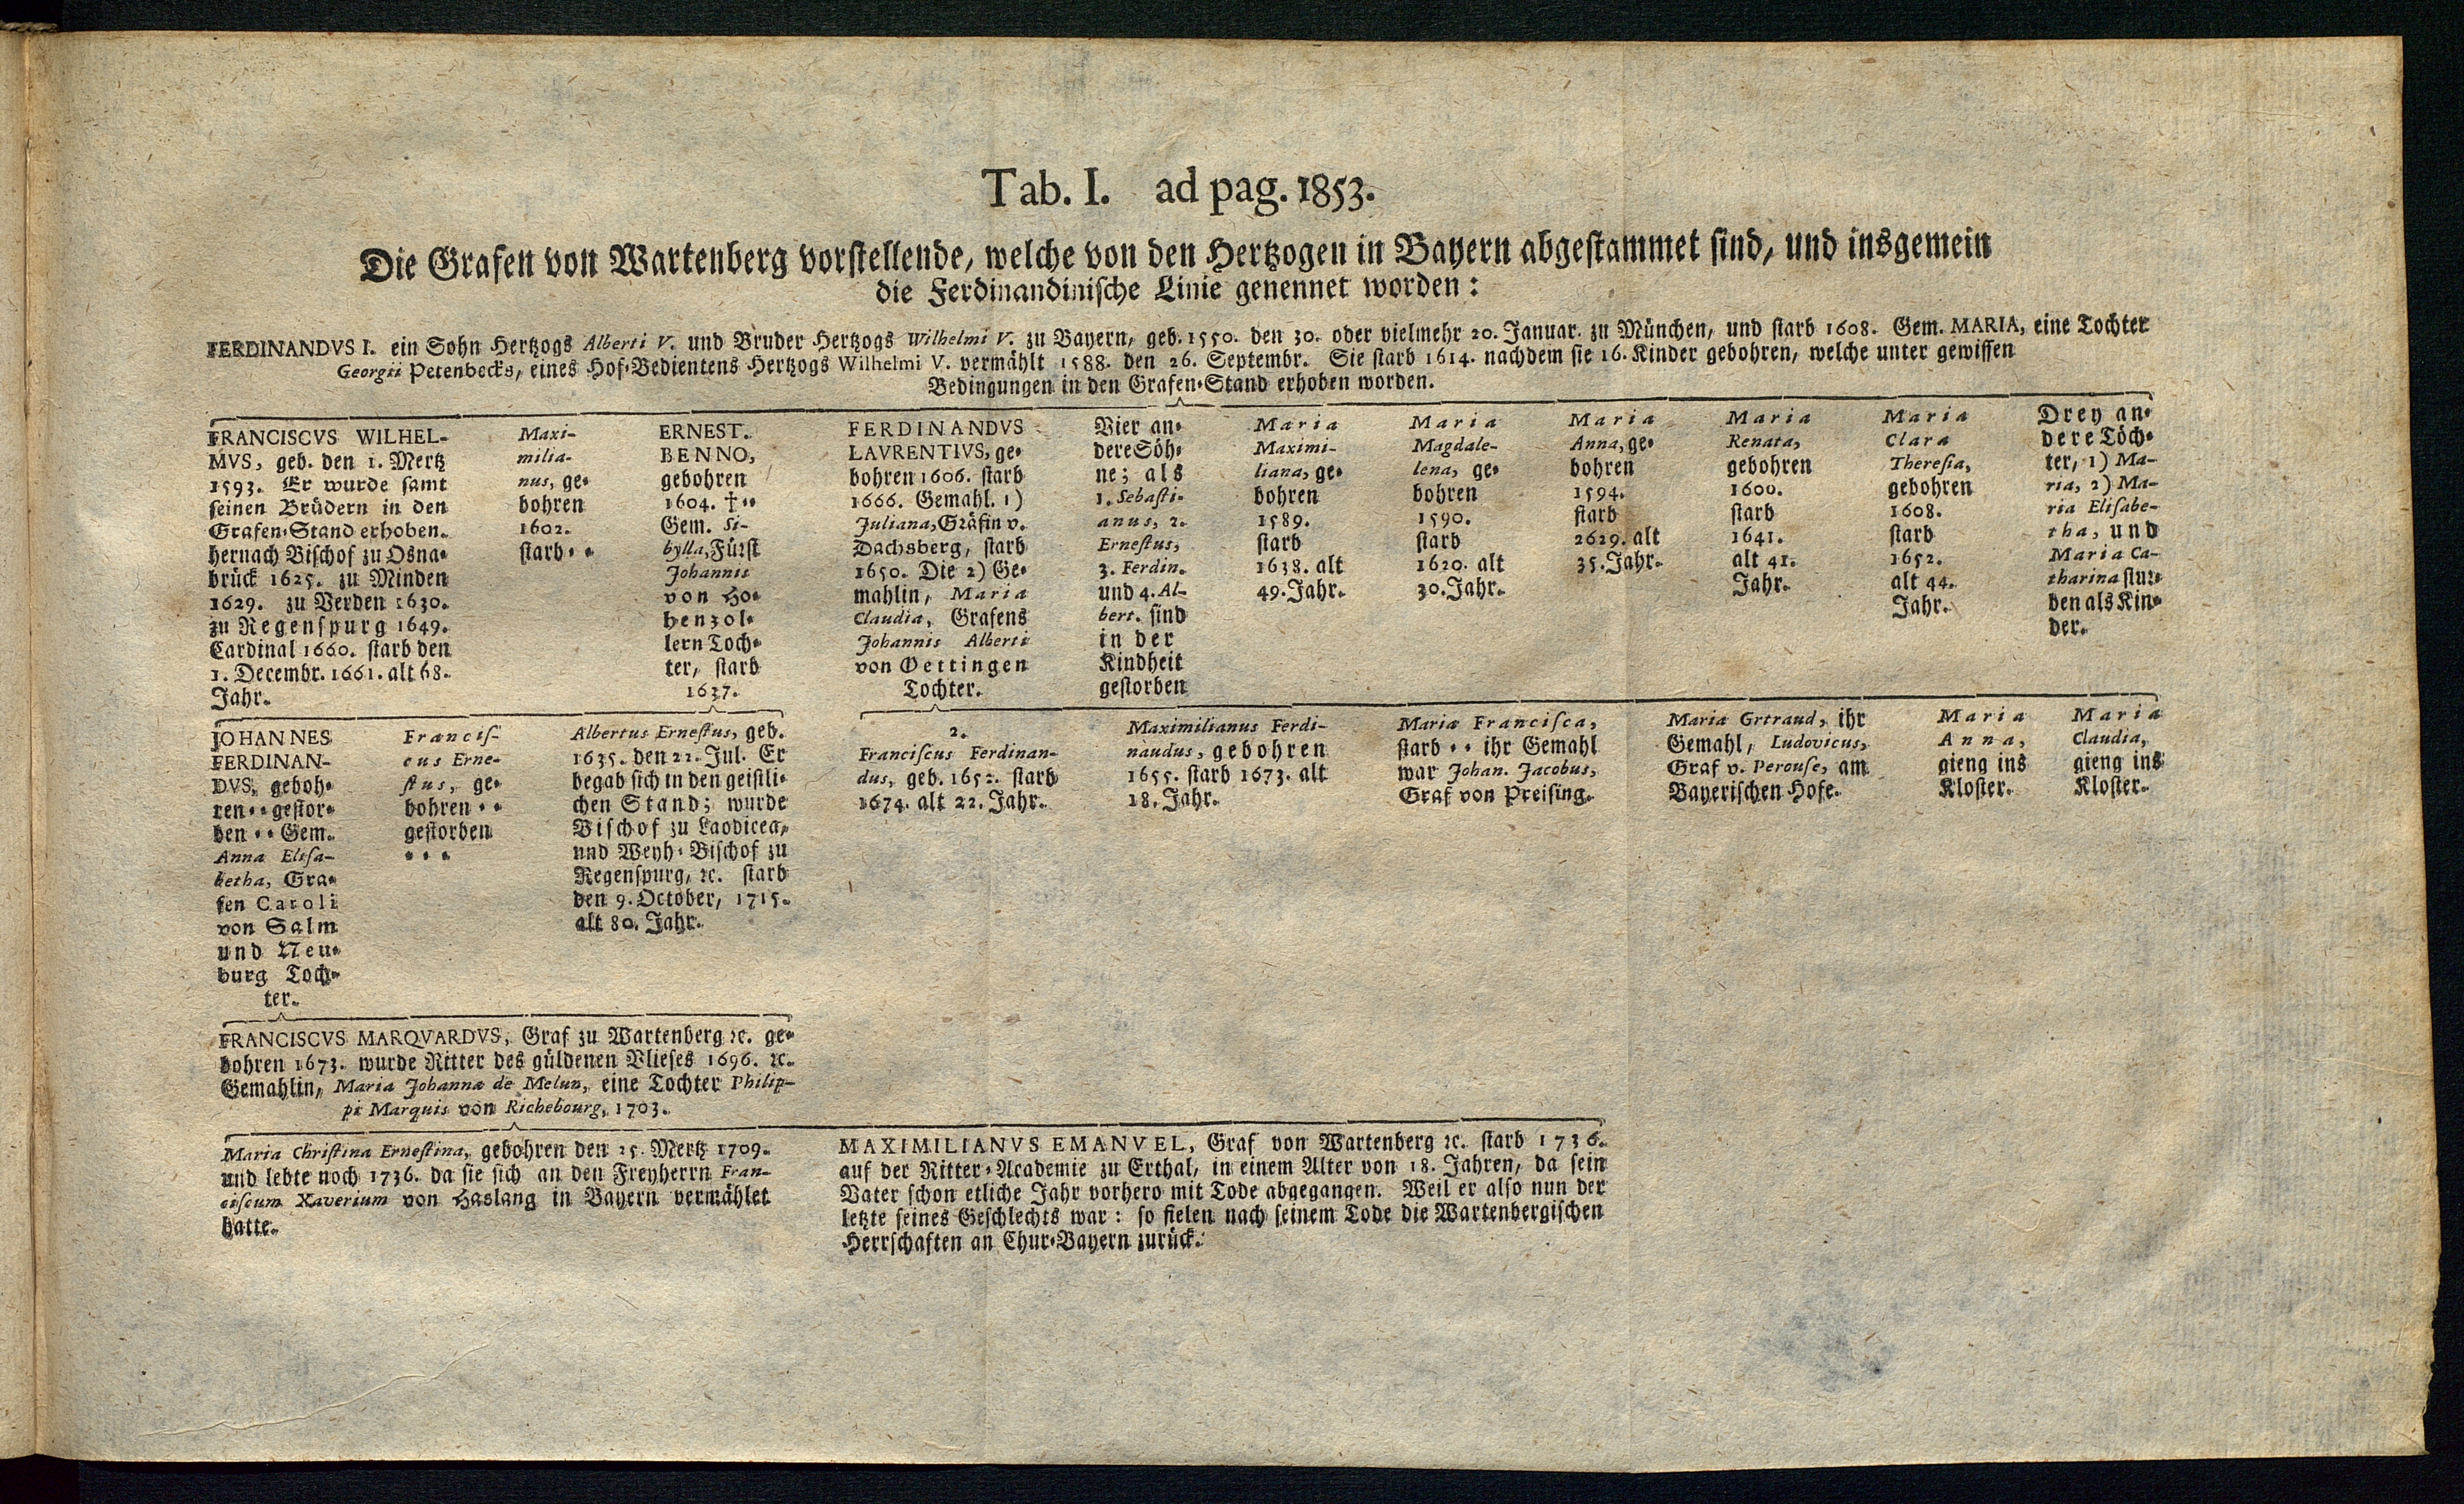 Tab. I. ad pag. 1853.
Die Grafen von Wartenberg vorstellende, welche von den Hertzogen in Bayern abgestammet sind, und insgemein
die Ferdinandinische Linie genennet worden:
FERDINANDVS I. ein Sohn Hertzogs Alberti V. und Bruder Hertzogs Wilhelmi V. zu Bayern, geb. 1550. den 30. oder vielmehr 20. Januar. zu München, und starb 1608. Gem. MARIA, eine Tochter
Georgii Petenbecks, eines Hof-Bedientens Hertzogs Wilhelmi V. vermählt 1588. den 26. Septembr. Sie starb 1614. nachdem sie 16. Kinder gebohren, welche unter gewissen
Bedingungen in den Grafen-Stand erhoben worden.
FRANCISCVS WILHEL-
MVS, geb. den 1. Mertz
1593. Er wurde samt
seinen Brüdern in den
Grafen-Stand erhoben.
hernach Bischof zu Osna-
brück 1625. zu Minden
1629. zu Verden 1630.
zu Regenspurg 1649.
Cardinal 1660. starb den
1. Decembr. 1661. alt 68.
Jahr.
Maxi-
milia-
nus, ge-
bohren
1602.
starb - -
ERNEST.
BENNO,
gebohren
1604. † - -
Gem. Si-
bylla, Fürst
Johannis
von Ho-
henzol-
lern Toch-
ter, starb
1637.
FERDINANDVS
LAVRENTIVS, ge-
bohren 1606. starb
1666. Gemahl. 1)
Juliana, Gräfin v.
Dachsberg, starb
1650. Die 2) Ge-
mahlin, Maria
Claudia, Grafens
Johannis Alberti
von Oettingen
Tochter.
Vier an-
dere Söh-
ne; als
1. Sebasti-
anus, 2.
Ernestus,
3. Ferdin.
und 4. Al-
bert. sind
in der
Kindheit
gestorben
Maria
Maximi-
liana, ge-
bohren
1589.
starb
1638. alt
49. Jahr.
Maria
Magdale-
lena, ge-
bohren
1590.
starb
1620. alt
30. Jahr.
Maria
Anna, ge-
bohren
1594.
starb
2629. alt
35. Jahr.
Maria
Renata,
gebohren
1600.
starb
1641.
alt 41.
Jahr.
Maria
Clara
Theresia,
gebohren
1608.
starb
1652.
alt 44.
Jahr.
Drey an-
dere Töch-
ter, 1) Ma-
ria, 2) Ma-
ria Elisabe-
tha, und
Maria Ca-
tharina stur-
ben als Kin-
der.
JOHANNES
FERDINAN-
DVS, geboh-
ren - - gestor-
ben - - Gem.
Anna Elisa-
betha, Gra-
fen Caroli
von Salm
und Neu-
burg Toch-
ter.
Francis-
cus Erne-
stus, ge-
bohren - -
gestorben
- - -
Albertus Ernestus, geb.
1635. den 22. Jul. Er
begab sich in den geistli-
chen Stand; wurde
Bischof zu Laodicea,
und Weyh-Bischof zu
Regenspurg, ꝛc. starb
den 9. October, 1715.
alt 80. Jahr.
2.
Franciscus Ferdinan-
dus, geb. 1652. starb
1674. alt 22. Jahr.
Maximilianus Ferdi-
naudus, gebohren
1655. starb 1673. alt
18. Jahr.
Maria Francisca,
starb - - ihr Gemahl
war Johan. Jacobus,
Graf von Preising.
Maria Grtraud, ihr
Gemahl, Ludovicus,
Graf v. Perouse, am
Bayerischen Hofe.
Maria
Anna,
gieng ins
Kloster.
Maria
Claudia,
gieng ins
Kloster.
FRANCISCVS MARQVARDVS, Graf zu Wartenberg ꝛc. ge-
bohren 1673. wurde Ritter des güldenen Vlieses 1696. ꝛc.
Gemahlin, Maria Johanna de Melun, eine Tochter Philip-
pi Marquis von Richebourg, 1703.
Maria Christina Ernestina, gebohren den 25. Mertz 1709.
und lebte noch 1736. da sie sich an den Freyherrn Fran-
ciscum Xaverium von Haslang in Bayern vermählet
hatte.
MAXIMILIANVS EMANVEL, Graf von Wartenberg ꝛc. starb 1736.
auf der Ritter-Academie zu Erthal, in einem Alter von 18. Jahren, da sein
Vater schon etliche Jahr vorhero mit Tode abgegangen. Weil er also nun der
letzte seines Geschlechts war: so fielen nach seinem Tode die Wartenbergischen
Herrschaften an Chur-Bayern zurück.